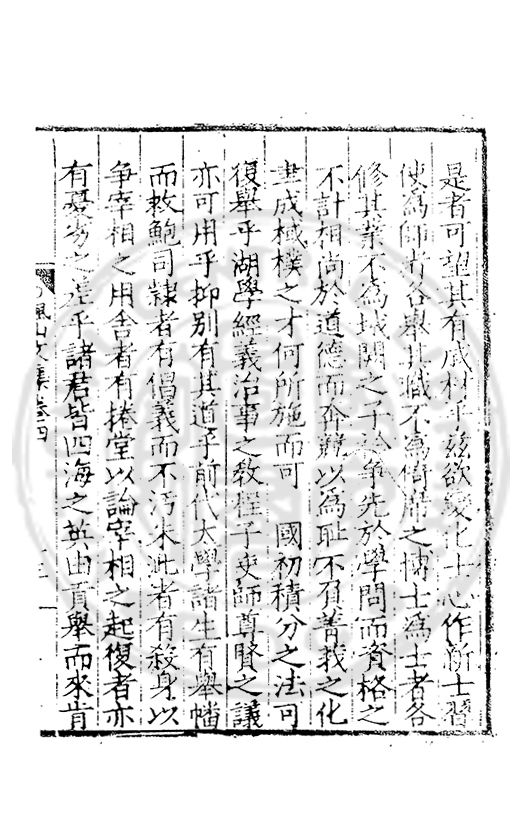 是者可望其有成材乎兹欲變化士心作新士習
使為師者各舉其職不為倚席之博士為士者各
修其業不為城闕之子衿爭先於學問而資格之
不計相尚於道德而奔競以為耻不負菁莪之化
畢成棫樸之才何所施而可 國初積分之法可
復舉乎湖學經義治事之教程子吏師尊賢之議
亦可用乎抑別有其道乎前代大學諸生有舉幡
而救鮑司隷者有倡義而不汚朱泚者有殺身以
爭宰相之用舍者有捲堂以論宰相之起復者亦
有憂劣之差乎諸君皆四海之英由貢舉而來肯
楓山文集卷四